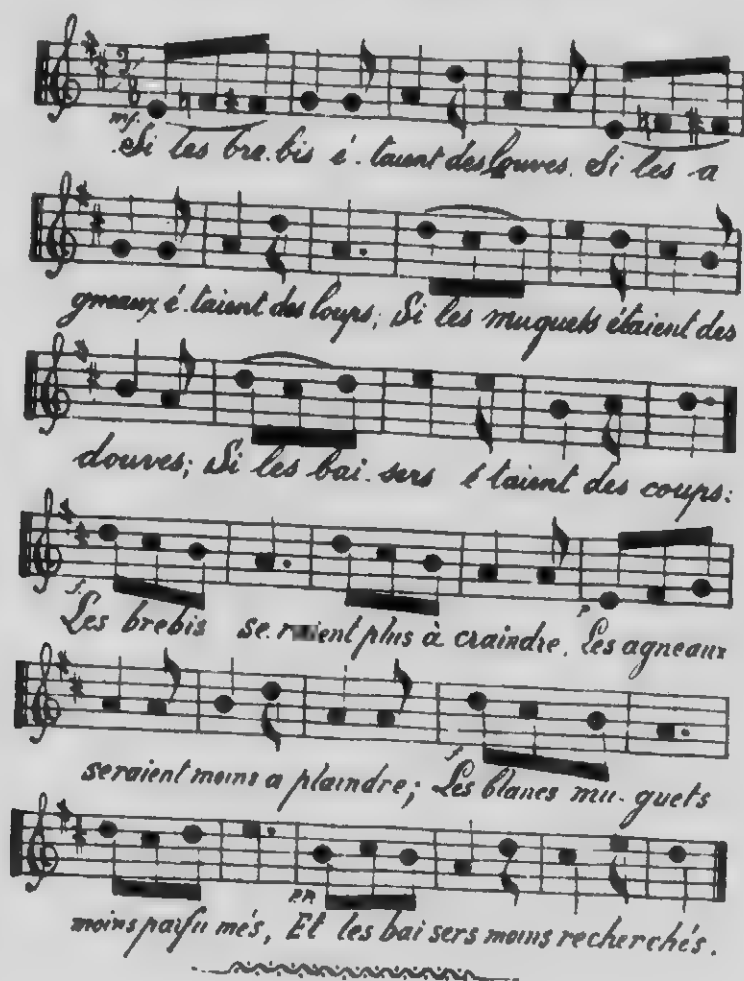 mf.
Si les bre.bis é.taient des louves. Si les a
gneaux é.taient des loups; Si les muguets étaient des
douves; Si les bai.sers é taient des coups:
f.
p
Les brebis se.raient plus à craindre. Les agneaux
f.
seraient moins a plaindre; Les blancs mu-guets
moins parfu més, Et les bai sers moins recherchés.